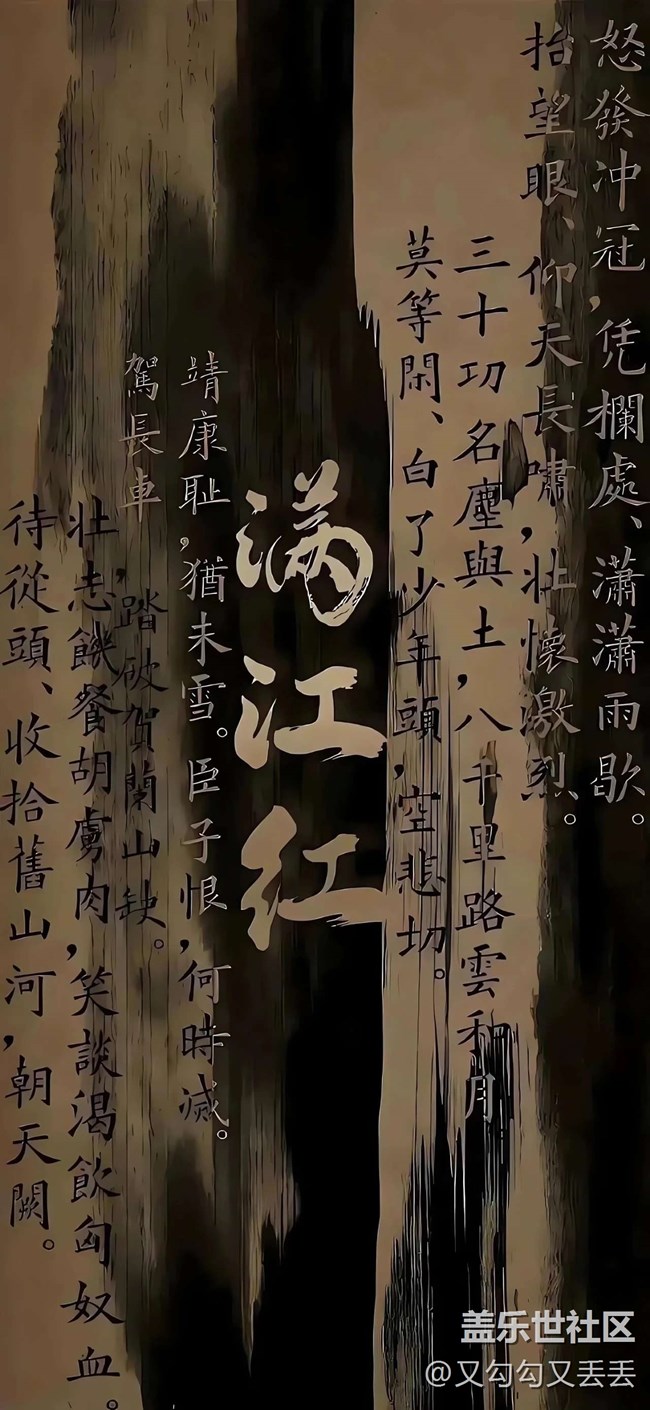 怒發冲冠，凭欄處、瀟瀟雨歇。
抬望眼、仰天長嘯，壯懷激烈。
三十功名塵與土，八千里路雲和月
莫等閑、白了少年頭，空悲切。
满江红
靖康耻，猶未雪。臣子恨，何時滅。
駕長車，踏破賀蘭山缺。
壯志饑餐胡虜肉，笑談渴飲匈奴血。
待從頭、收拾舊山河，朝天闕。
盖乐世社区
@又勾勾又丢丢